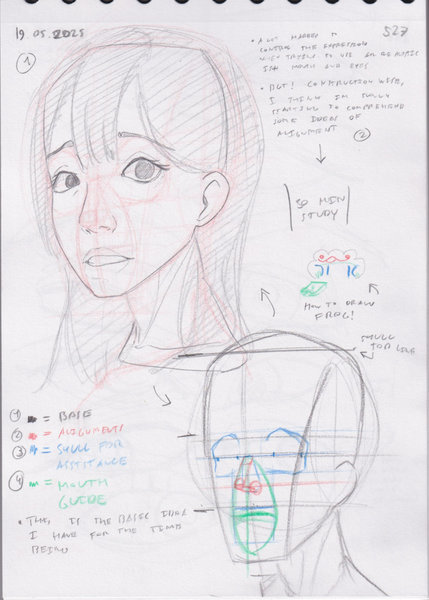 19.05.2025
527
1
• A LOT HARDER TO
CONTROL THE EXPRESSION
WHEN TRYING TO USE AN REALISTIC
ISH MOUTH AND EYES
• BUT! CONSTRUCTION WISE,
I THINK IM FULLY
STARTING TO COMPREHEND
SOME IDEAS OF
ALIGNMENT
2
30 MIN
STUDY
HOW TO DRAW
FROG!
SKULL
TOP LINE
1 = BASE
2 = ALIGNMENTS
3 = SKULL FOR
ASSISTANCE
4 = MOUTH
GUIDE
• THIS IS THE BASIC IDEA
I HAVE FOR THE TIME
BEING